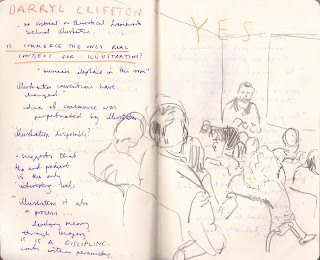 DARRYL CLIFFTON
- no critical or theoretical framework
behind illustration.
IS COMMERCE THE ONLY REAL
CONTEXT FOR ILLUSTRATION?
"business elephant in the room"
illustration conventions have
changed."
idea of commerce was
perpetuated by
illustration disposable?
- suggests that
the end product
is the only
"illustration is also
a process...
developing meaning
through imagery"
IT IS A DISCIPLINE.
works within parameters.
YES